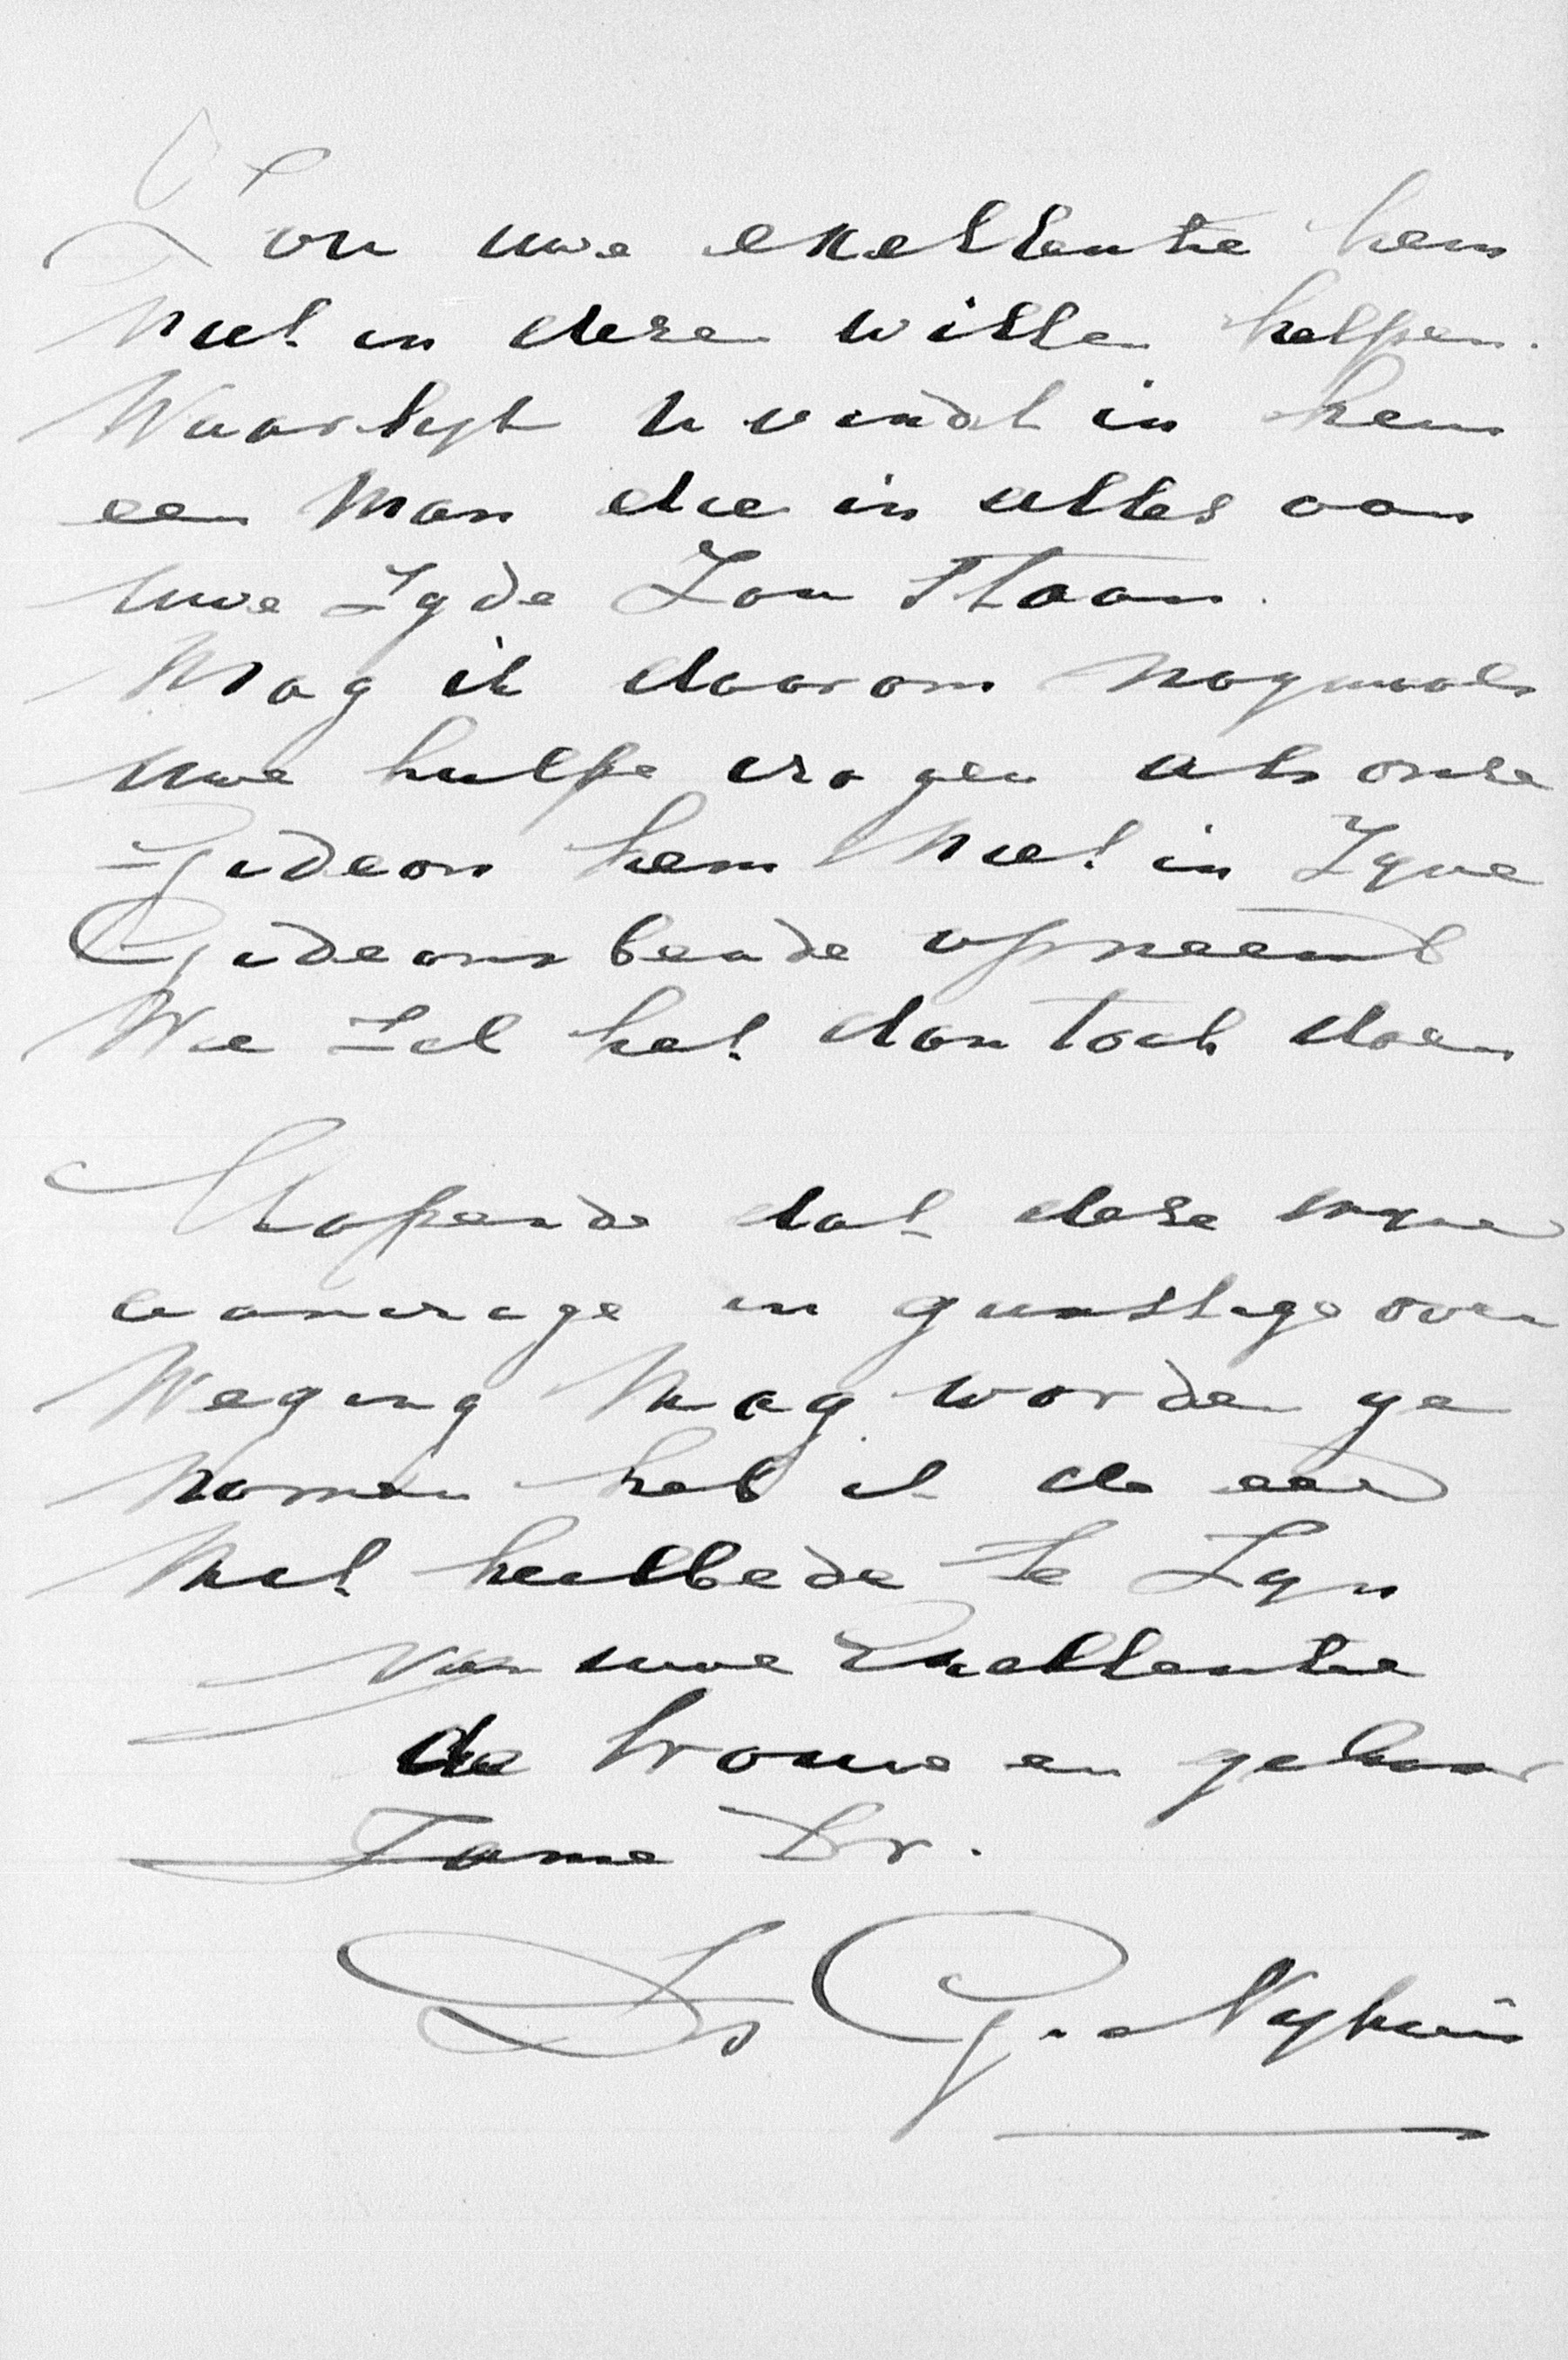 Zou uwe exellentie hem
niet in deze willen helpen.
Waarlyk u vindt in hem
een Man die in alles aan
uwe Zyde Zou Staan.
Mag ik daarom nogmaals
uwe hulpe vragen als onze
Gideon hem niet in Zyne
Gideonsbende opneemt
Wie Zal het dan toch doen
Hopende dat deze myne
aanvrage in gunstige over
Weging Mag worden ge
nomen heb ik de eer
Met heilbede te Zyn
Van uwe Exellentie
de trouwe en gehoor
Zame Dr.
Ds G. Nyhuis